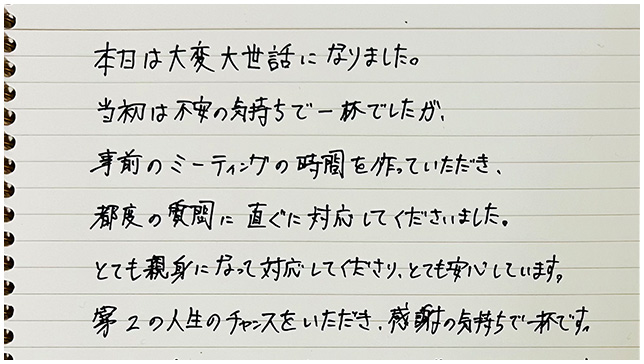 本日は大変大世話になりました。
当初は不安の気持ちで一杯でしたが、
事前のミーティングの時間を作っていただき、
都度の質問に直ぐに対応してくださいました。
とても親身になって対応してくださり、とても安心しています。
第2の人生のチャンスをいただき、感謝の気持ちで一杯です。